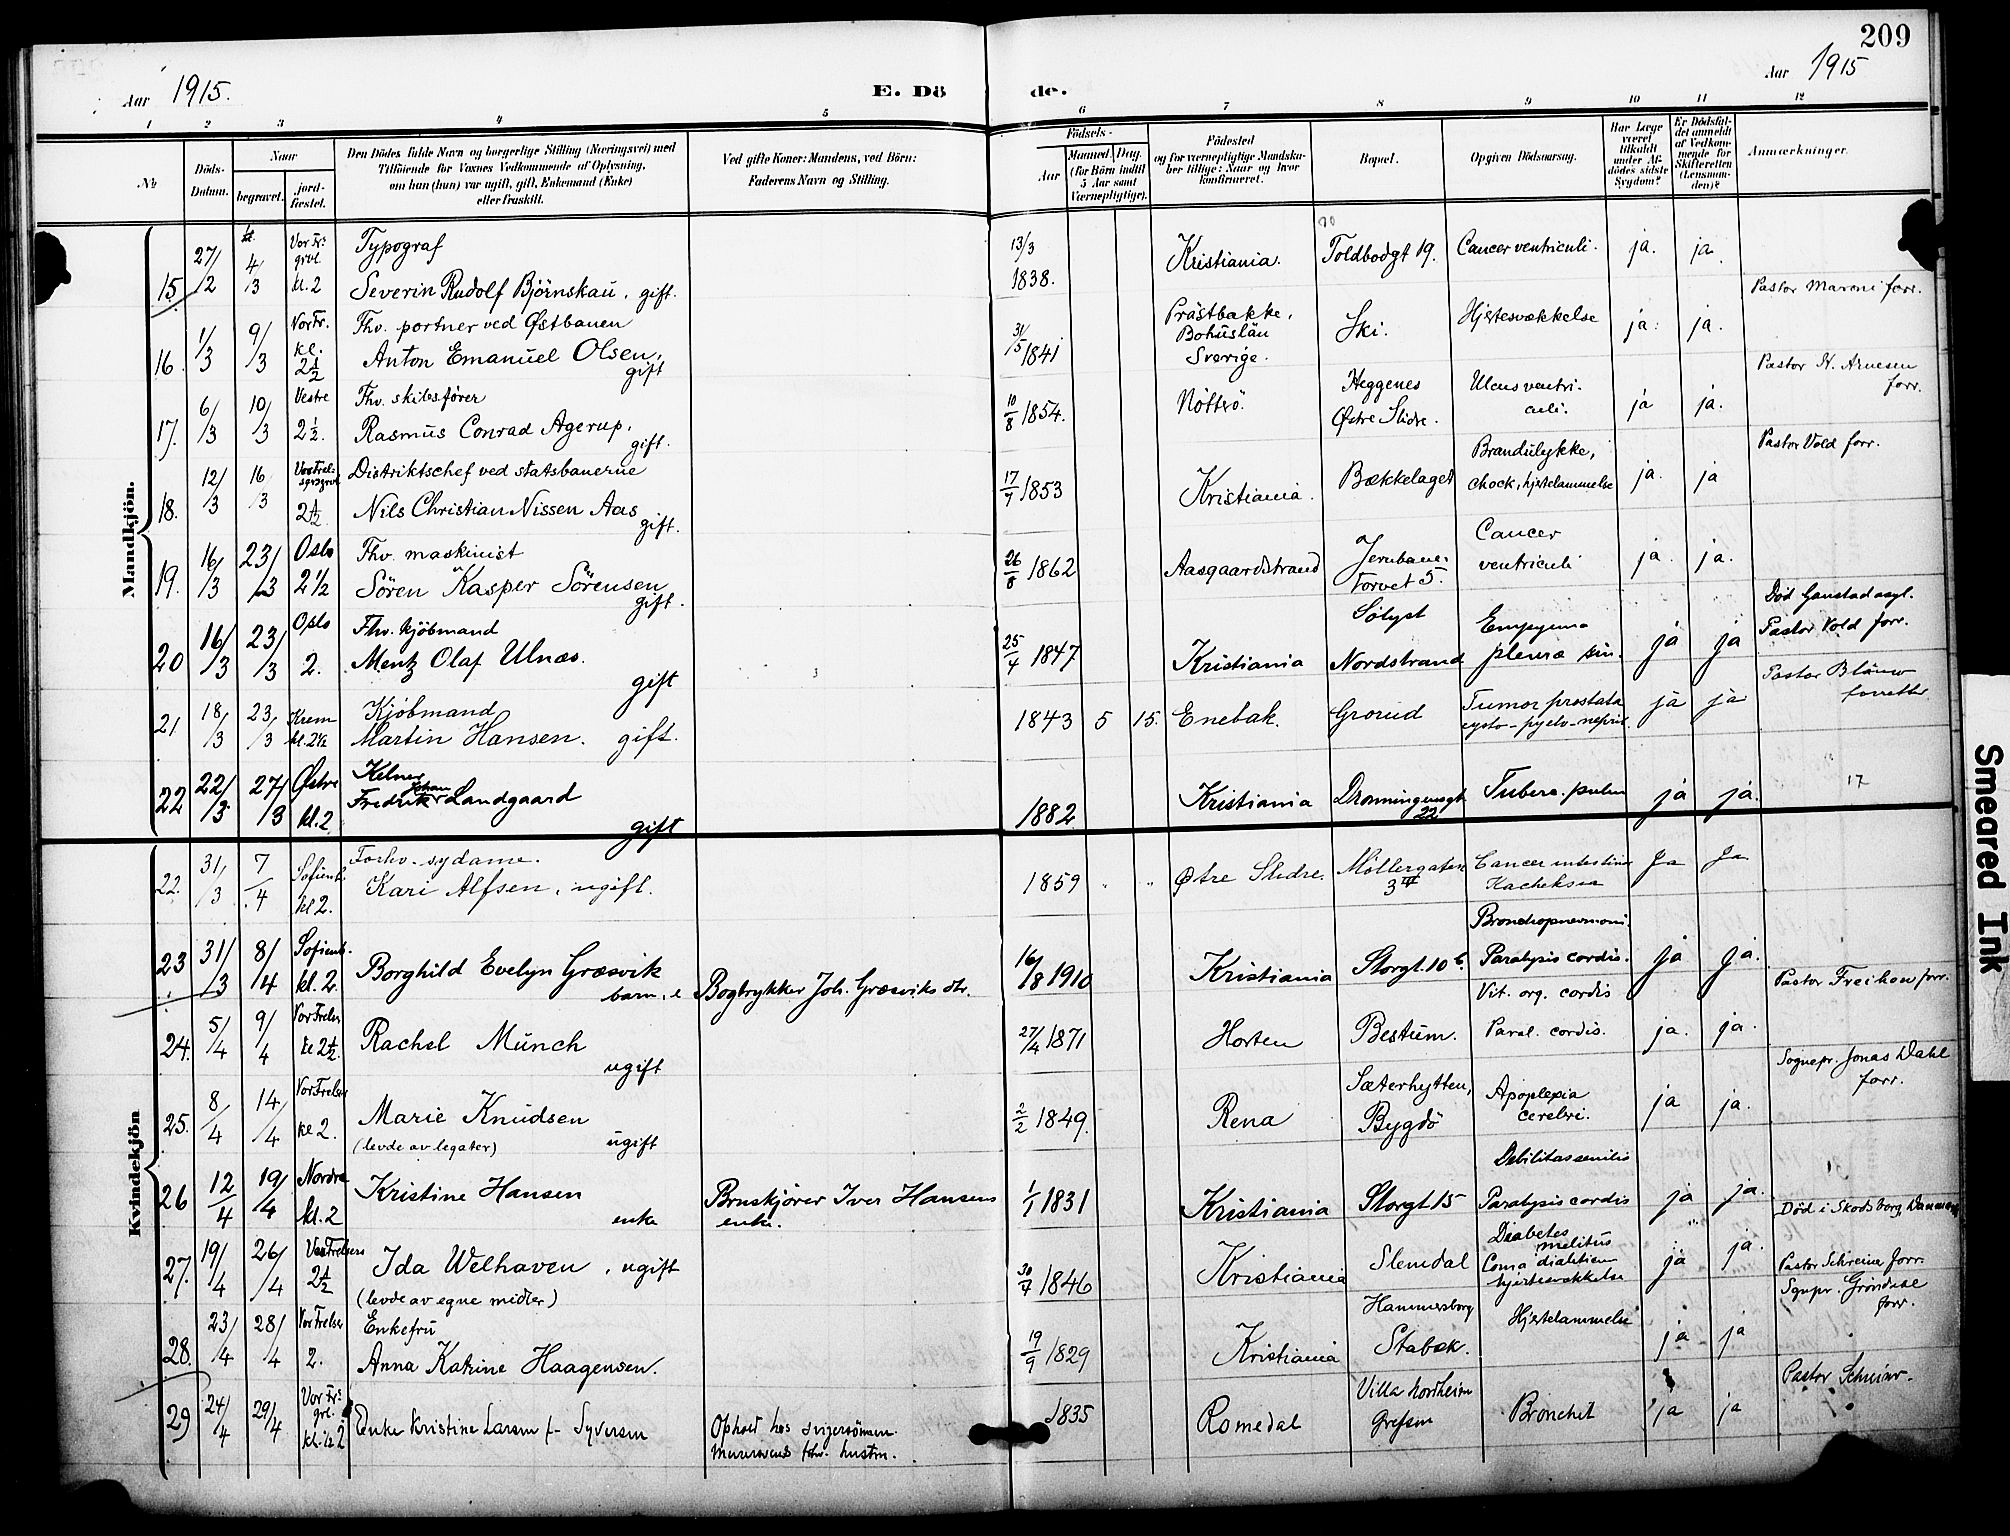 209
Aar 1915.
E. Dö de.
Aar 1915
1 2 3 4 5 6 7 8 9 10 11 12
No
Döds-Datum.
Naar
begravet.
jord-fæstet.
Den Dödes fulde Navn og borgerlige Stilling (Næringsvei) med
Tilföiende for Voxnes Vedkommende af Oplysning,
om han (hun) var ugift, gift, Enkemand (Enke)
eller fraskilt.
Ved gifte Koner: Mandens, ved Börn:
Faderens Navn og Stilling.
Födsels-
Aar
Maaned. Dag.
(for Börn indtil
5 Aar samt
Værnepligtige).
Födested
og for værnepligtige Mandska-
ber tillige: Naar og hvor
konfirmeret.
Bopæl.
Opgiven Dödsaarsag.
Har Læge
været
tilkaldt
under Af-
dödes sidste
Sygdom?
Er Dödsfal-
det anmeldt
af Vedkom-
mende for
Skifteretten
(Lensman-
den)?
Anmærkninger.
Mandkjön.
15 27/2 4/3 Vor Fr. grvl. kl. 2 Typograf
Severin Rudolf Björnskau, gift. 13/3 1838. Kristiania. Toldbodgt 19. Cancer ventriculi. ja. ja.
Pastor Maroni forr.
16. 1/3 9/3 Vor Fr. kl. 2 1/2 Thv. portner ved Østbanen
Anton Emanuel Olsen, gift 31/5 1841 Prästbakke, Bohuslän Sverige. Ski. Hjertesvækkelse ja. ja.
Pastor Arnesen forr.
17. 6/3 10/3 Vestre 2 1/2. Fhv. skibsfører
Rasmus Conrad Agerup, gift. 10/8 1854. Nöttrö. Heggenes Østre Slidre. Ulcus ventriculi. ja ja.
Pastor Vold forr.
18. 12/3 16/3 2 1/2 Distriktschef ved statsbanerne
Nils Christian Nissen Aas gift. 17/7 1853 Kristiania. Bækkelaget Brandulykke, chock, hjertelammelse ja. ja
19. 16/3 23/3 Oslo 2 1/2 Fhv. maskinist
Sören Kasper Sörensen gift. 26/8 1862 Aasgaardstrand Jernbanetorvet 5. Cancer ventriculi ja. ja.
Död Gaustad asyl.
20 16/3 23/3 Oslo 2. Fhv. kjöbmand
Mentz Olaf Ulnæs. gift 25/4 1847 Kristiania Sólyst Nordstrand Empyema pleuræ sin. ja ja
Pastor Vold forr.
21 18/3 23/3 Krem kl. 2 1/2 Kjöbmand
Martin Hansen. gift. 1843 5 15. Enebak. Grorud Tumor prostata ja ja
Pastor Blauw forretter
22 22/3 27/3 Østre kl. 2 Kelner
Fredrik Johan Landgaard gift 1882 Kristiania Dronningensgt 22 Tuberc. pulm ja ja.
17
Kvindekjön
22. 31/3 7/4 Sofienb. kl 2. Forhv. sydame.
Kari Alfsen, ugift. 1859 " " Østre Slidre. Möllergaten Cancer intestina Kacheksia Ja Ja
23 31/3 8/4 Sofienb. kl. 2. Borghild Evelyn Græsvik barn, Bogtrykker Joh. Græsviks dtr. 16/8 1910 Kristiania Storgt. 10 b. Bronchopneumoni. Paralysis cordis. ja ja.
Pastor Freihow forr.
24. 5/4 9/4 Vor Frelser kl 2 1/2. Rachel Münch ugift 27/4 1871 Horten Bestum. Vit. org. cordis Paral. cordis. ja. ja.
Sognepr. Jonas Dahl forr.
25. 8/4 14/4 Vor Frelser kl 2. Marie Knudsen
(levde av legater) ugift 2/2 1849. Rena Sæterhytten, Bygdö Apoplexia cerebri. ja ja.
26 12/4 19/4 Nordre kl. 2 Kristine Hansen enke Bruskjörer Iver Hansens enke. 1/1 1831 Kristiania Storgt 15 Debilitas senilis Paralysis cordis ja ja.
Död i Skodsborg, Danmark
27. 19/4 26/4 Vor Frelsers 2 1/2 Ida Welhaven, ugift
(levde av egne midler) 30/7 1846 Kristiania Slemdal Diabetes melitus Coma hjertesvækkelse ja ja.
Pastor Schreiner forr.
28. 23/4 28/4 Vor Frelser 2. Enkefru
Anna Katrine Haagensen. 19/9 1829 Kristiania Hammersborg Stabæk. Hjertelammelse ja ja
Sgnpr. forr.
29 24/4 29/4 Vor Fr. grl. Enke Kristine Larsen f. Syversen Ophold hos svigersönnen 1835 Romedal Villa Nordheim Grefsen Bronchit ja ja
Pastor Schreiner.
Smeared Ink